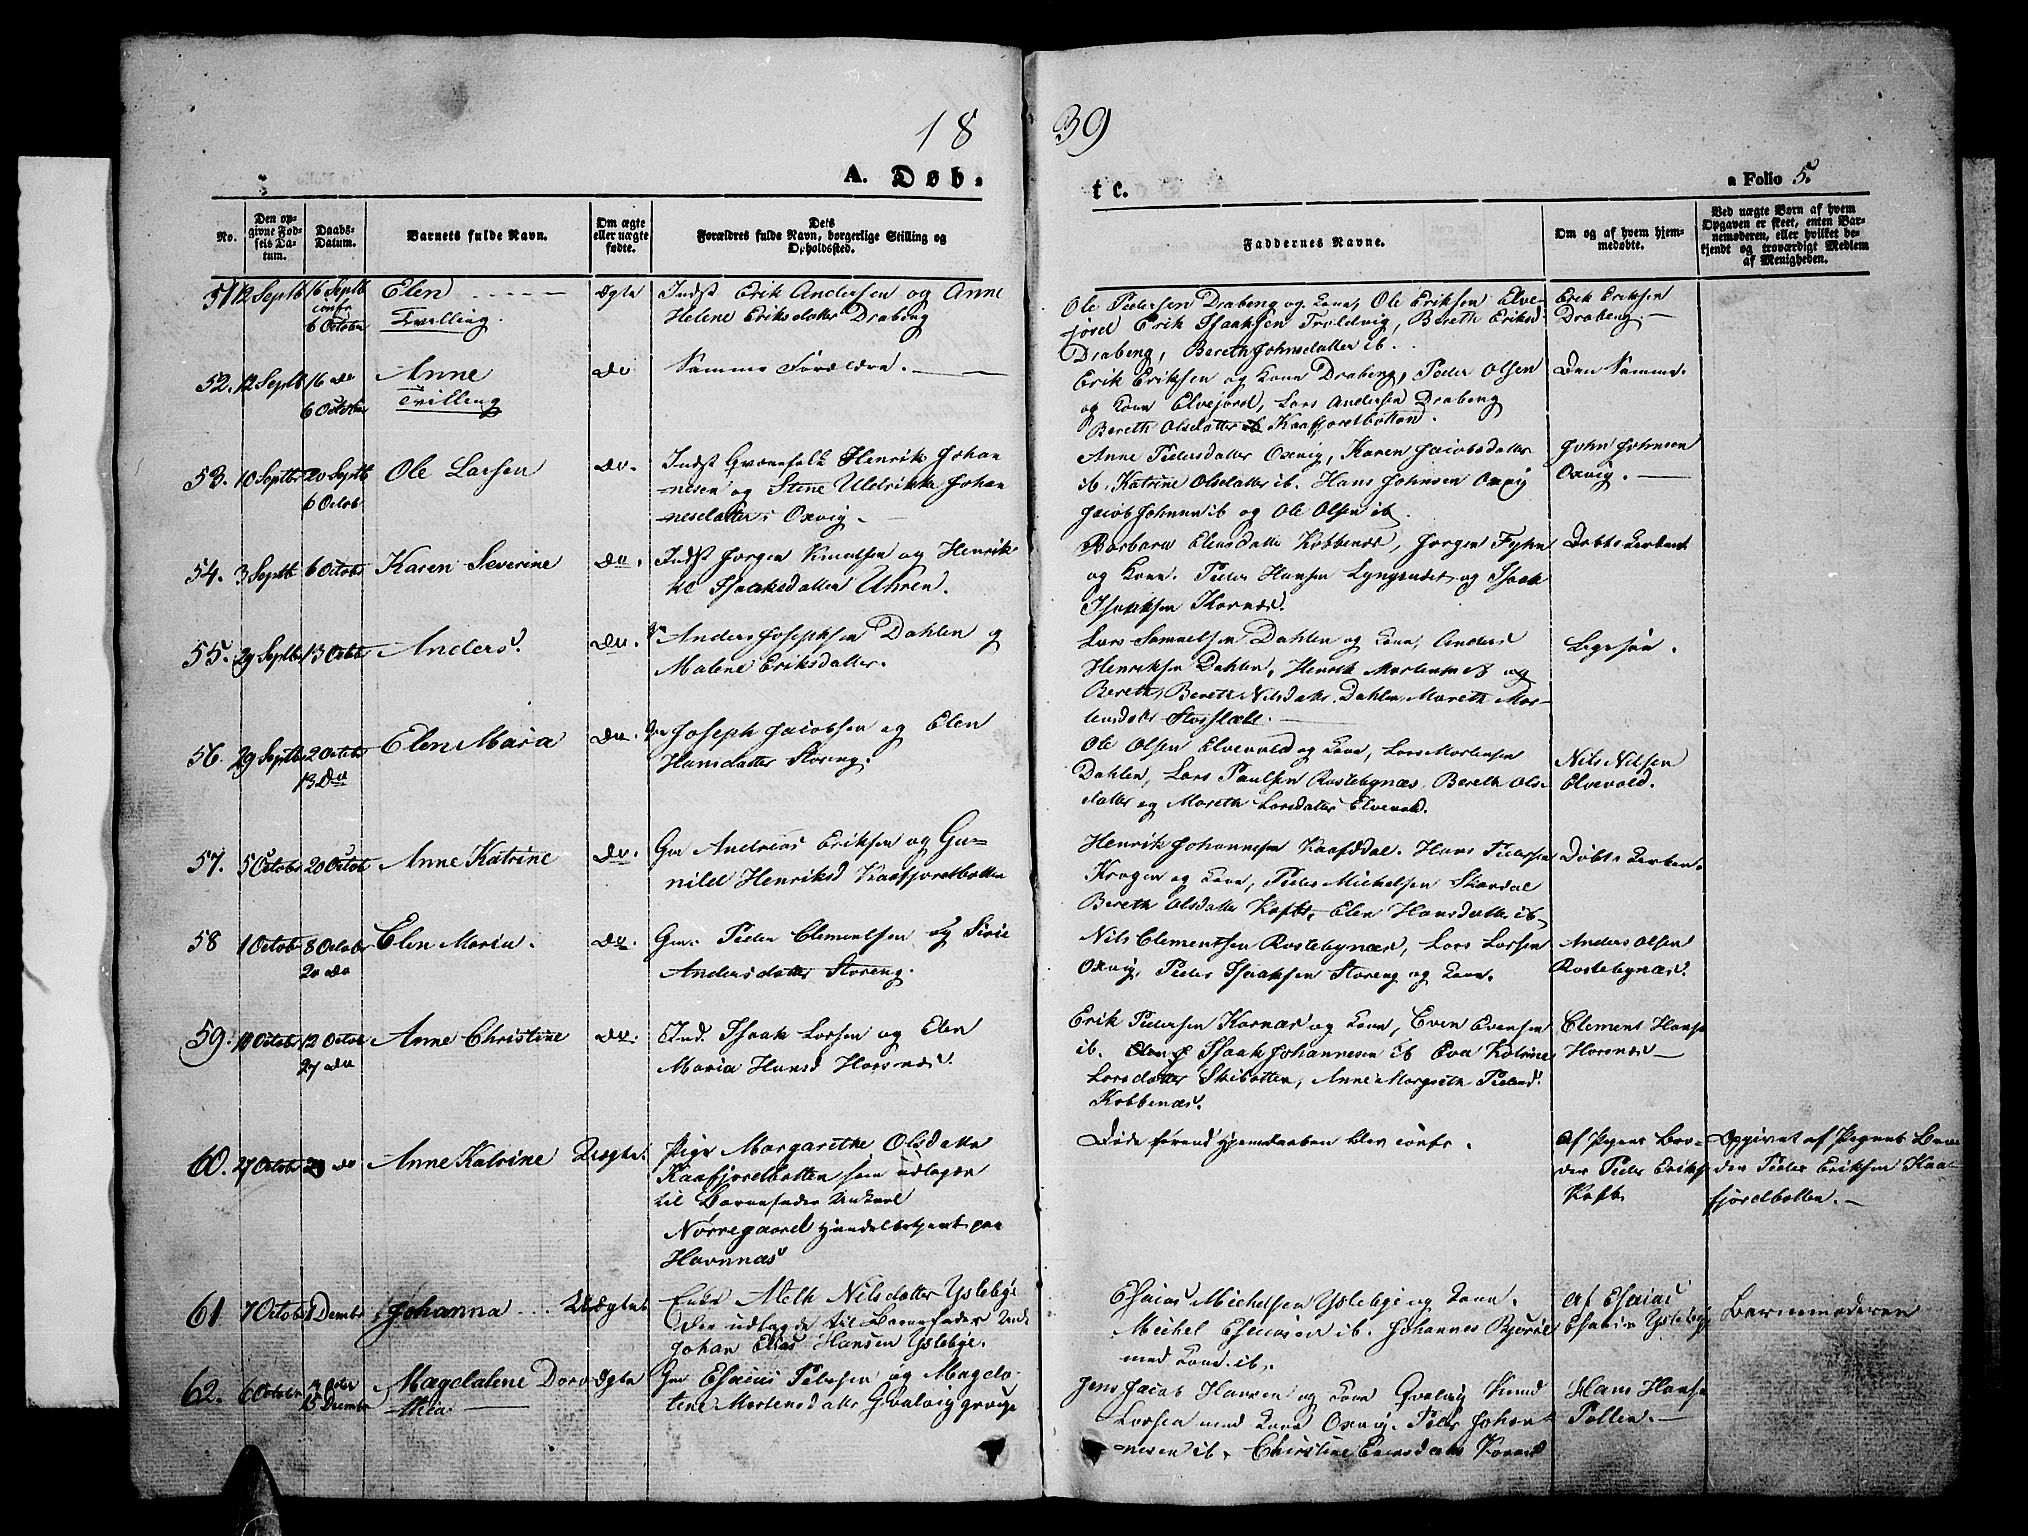 18 39
A. Døb. t c. a Folio 5.
No.
Den opgivne Fødsels Datum.
Daabs-Datum.
Barnets fulde Navn.
Om ægte eller uægte fødte.
Dets Forældres fulde Navn, borgerlige Stilling og Opholdssted.
Faddernes Navne.
Om og af hvem hjemmedøbte.
Ved uægte Børn af hvem Opgaven er skeet, enten Barnemoderen, eller hvilket bekjendt og troværdigt Medlem af Menigheden.
51 12 Septb 16 Septb conf. 6 Octobr
Elen
Tvilling
Ægte
Indst Erik Andersen og Anne
Helene Eriksdatter Drabeng
Ole Pedersen Drabeng og Kone, Ole Eriksen Elve-
jord Erik Isaaksen Troldvig, Bereth Eriksd
Drabeng, Bereth Johnsdatter ib.
Erik Eriksen
Drabeng.
52. 12 Septb 16 do 6 Octobr
Anne
Tvilling
do
Samme Forældre.
Erik Eriksen og Kone Drabeng, Peder Olsen
og Kone Elvejord, Lars Andersen Drabeng
Bereth Olsdatter ib Kaafjordbotten.
Den Samme.
53. 10 Septbr 20 Septb 6 Octob
Ole Larsen
do.
Indst Qvænfolk Henrik Johan
nesen og Stine Uldrikke Johan
nesdatter Oxvig.
Anne Pedersdatter Oxvig, Karen Jacobsdatter
ib. Katrine Olsdatter ib. Hans Johnsen Oxvig
Jacob Johnsen ib og Ole Olsen ib
John Johnsen
Oxvig.
54. 3 Septb 6 Octobr
Karen Severine
do.
Indst Jørgen Knudsen og Henrik-
ke Isaaksdatter Uhren.
Barbara Elensdatter Kobbenæs, Jørgen Fyhn
og Kone. Peder Hansen Lyngseidet og Isaak
Isaaksen Kornæs.
55. 29 Septbr 13 Octbr
Anders.
do.
Anders Josephsen Dahlen og
Malene Eriksdatter.
Lars Samuelsen Dahlen og Kone, Anders
Henriksen Dahlen, Henrik Mortensen og
Bereth, Bereth Nilsdatr. Dahlen Mareth Mor-
tensdatr Storslett.
Ligesaa.
56. 29 Septbr 2 Octobr 13 Do
Elen Maria
do.
Joseph Jacobsen og Elen
Hansdatter Storeng.
Ole Olsen Elvevold og Kone, Lars Mortensen
Dahlen, Lars Paulsen Rastebynæs, Bereth Ols-
datter og Mareth Larsdatter Elvevold.
Nils Nilsen
Elvevold.
57. 5 Octobr 20 Octob
Anne Katrine
do.
Gm Andreas Eriksen og Gu-
nild Henriksd Kaafjordbotten
Henrik Johannesen Kaafddal. Hans Pedersen
Krogen og Kone, Peder Michelsen Skardal
Bereth Olsdatter Kafb., Elen Hansdatter ib.
58 1 Octobr 8 Octobr 20 do
Elen Maria.
do.
Gm. Peder Clementsen og Sirie
Andersdatter Storeng.
Nils Clementsen Rastebynæs, Lars Larsen
Oxvig, Peder Isaaksen Storeng og Kone.
Anders Olsen
Rastebynæs.
59. 10 Octobr 12 Octob 27 do
Anne Christine
do.
Ind. Isaak Larsen og Elen
Maria Hansd Horsnæs.
Erik Pedersen Kornæs og Kone, Even Evensen
ib. Isaak Johannesen ib Eva Katrine
Larsdatter Skibotten, Anne Margreth Pedersd.
Kobbenæs.
Clement Hansen
Horsnæs
60. 27 Octobr 29 do
Anne Katrine
Uægte.
Pige Margarethe Olsdatter
Kaafjordbotten som udlægger
til Barnefader Unkarl
Nørregaard Handelsbetjent paa
Havnnæs
Døde førend Hjemdaaben blev conf.
Af Pigens Bro-
der Peder Eriks
Kafb.
Opgivet af Pigens Bro
der Peder Eriksen Kaa-
fjordbotten.
61. 7 Octobr 1 Decembr
Johanna
Uægte
Enke Meth Nilsdatter Yslebye
Der udlagde til Barnefader Unk
Johan Elias Hansen Yslebye.
Esaias Michelsen Yslebye og Kone.
Michel Esaiasen ib. Johannes
med Kone ib.
Af Esaias
Esaisen Yslebye
Barnemoderen
62. 6 Octobr 15 Decembr
Magdalene Doro-
thea
Ægte
Gm Esaias Pedersen og Magda-
lene Mortensdatter
Jens Jacob Hansen og Kone Qvalvig Knud
Larsen med Kone Oxvig. Peder Johan-
nesen ib. Christine
Hans Hansen
Pollen.